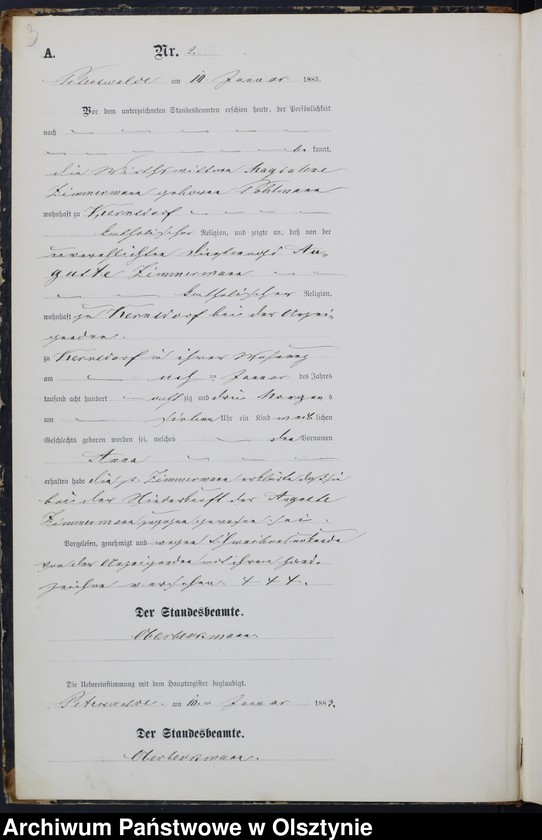 3
A. Nr. 2.
Peterswalde am 10. Januar 1883.
Vor dem unterzeichneten Standesbeamten erschien heute, der Persönlichkeit
nach
kannt,
die Wirthswittwe Magdalene
Zimmermann geborene Pohlmann
wohnhaft zu Kerndorf
katholischer Religion, und zeigte an, daß von der
unverehelichten Au-
guste Zimmermann
katholischer Religion,
wohnhaft zu Kerndorf bei der Anzei-
genden
zu Kerndorf in ihrer Wohnung
am acht ten Januar des Jahres
tausend acht hundert achtzig und drei Morgens
um sieben Uhr ein Kind weiblichen
Geschlechts geboren worden sei, welches den Vornamen
Anna
erhalten habe die p. Zimmermann erklärte daß sie
bei der Niederkunft der Auguste
Zimmermann zugegen gewesen sei.
Vorgelesen, genehmigt und wegen Schreibensunkunde
von der Anzeigenden mit ihrem Hand-
zeichen versehen. + + +.
Der Standesbeamte.
Die Uebereinstimmung mit dem Hauptregister beglaubigt.
Peterswalde. am 10. Januar 1883.
Der Standesbeamte.
Archiwum Państwowe w Olsztynie